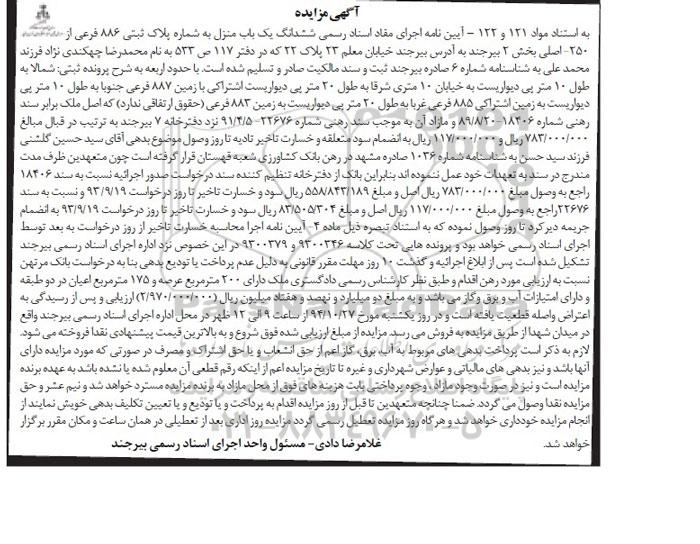 آگهی مزایده
به استناد مواد ۱۲۱ و ۱۲۲ – آیین نامه اجرای مفاد اسناد رسمی ششدانگ یک باب منزل به شماره پلاک ثبتی ۸۸۶ فرعی از
۲۵۰- اصلی بخش ۲ بیرجند به آدرس بیرجند خیابان معلم ۲۳ پلاک ۲۲ که در دفتر ۱۱۷ ص ۵۳۳ به نام محمدرضا چهکندی نژاد فرزند
محمد علی به شناسنامه شماره ۶ صادره بیرجند ثبت و سند مالکیت صادر و تسلیم شده است. با حدود اربعه به شرح پرونده ثبتی: شمالا به
طول ۱۰ متر پی دیواریست به خیابان ۱۰ متری شرقا به طول ۲۰ متر پی دیواریست اشتراکی با زمین ۸۸۷ فرعی جنوبا به طول ۱۰ متر پی
دیواریست به زمین اشتراکی ۸۸۵ فرعی غربا به طول ۲۰ متر پی دیواریست به زمین ۸۸۳ فرعی (حقوق ارتفاقی ندارد) که اصل ملک برابر سند
رهنی شماره ۱۸۴۰۶-۸۹/۸/۲۰ و مازاد آن به موجب سند رهنی شماره ۲۲۶۷۶-۹۱/۴/۵ نزد دفترخانه ۷ بیرجند به ترتیب در قبال مبالغ
۷۸۳/۰۰۰/۰۰۰ ریال و ۱۱۷/۰۰۰/۰۰۰ ریال به انضمام سود متعلقه و خسارت تاخیر تادیه تا روز وصول موضوع بدهی آقای سید حسین گلشنی
فرزند سید حسن به شناسنامه شماره ۱۰۳۶ صادره مشهد در رهن بانک کشاورزی شعبه قهستان قرار گرفته است چون متعهدین ظرف مدت
مندرج در سند به تعهدات خود عمل ننموده اند بنابراین بانک از دفترخانه تنظیم کننده سند درخواست صدور اجرائیه نسبت به سند ۱۸۴۰۶
راجع به وصول مبلغ ۷۸۳/۰۰۰/۰۰۰ ریال اصل و مبلغ ۵۵۸/۸۴۳/۱۸۹ ریال سود و خسارت تاخیر تا روز درخواست ۹۳/۹/۱۹ و نسبت به سند
۲۲۶۷۶راجع به وصول مبلغ ۱۱۷/۰۰۰/۰۰۰ ریال اصل و مبلغ ۸۳/۵۰۵/۳۰۴ ریال سود و خسارت تاخیر تا روز درخواست ۹۳/۹/۱۹ به انضمام
جریمه دیرکرد تا روز وصول نموده که به استناد تبصره ذیل ماده ۴- آیین نامه اجرا محاسبه خسارت تاخیر از روز درخواست به بعد توسط
اجرای اسناد رسمی خواهد بود و پرونده هایی تحت کلاسه ۹۳۰۰۳۴۶ و ۹۳۰۰۳۷۹ در این خصوص نزد اداره اجرای اسناد رسمی بیرجند
تشکیل شده است پس از ابلاغ اجرائیه و گذشت ۱۰ روز مهلت مقرر قانونی به دلیل عدم پرداخت یا تودیع بدهی بنا به درخواست بانک مرتهن
نسبت به ارزیابی مورد رهن اقدام و طبق نظر کارشناس رسمی دادگستری ملک دارای ۲۰۰ مترمربع عرصه و ۱۷۵ مترمربع اعیان در دو طبقه
و دارای امتیازات آب و برق وگاز می باشد و به مبلغ دو میلیارد و نهصد و هفتاد میلیون ریال (۲/۹۷۰/۰۰۰/۰۰۰) ارزیابی و پس از رسیدگی به
اعتراض واصله قطعیت یافته است و در روز یکشنبه مورخ ۹۴/۱۰/۲۷ از ساعت ۹ الی ۱۲ ظهر در محل اداره اجرای اسناد رسمی بیرجند واقع
در میدان شهدا از طریق مزایده به فروش می رسد. مزایده از مبلغ ارزیابی شده فوق شروع و به بالاترین قیمت پیشنهادی نقدا فروخته می شود.
لازم به ذکر است پرداخت بدهی های مربوط به آب، برق، گاز اعم از حق انشعاب و یا حق اشتراک و مصرف در صورتی که مورد مزایده دارای
آنها باشد و نیز بدهی های مالیاتی و عوارض شهرداری و غیره تا تاریخ مزایده اعم از اینکه رقم قطعی آن معلوم شده یا نشده باشد به عهده برنده
مزایده است و نیز در صورت وجود مازاد، وجوه پرداختی بابت هزینه های فوق از محل مازاد به برنده مزایده مسترد خواهد شد و نیم عشر و حق
مزایده نقدا وصول می گردد. ضمنا چنانچه متعهدین تا قبل از روز مزایده اقدام به پرداخت و یا تودیع و یا تعیین تکلیف بدهی خویش نمایند از
انجام مزایده خودداری خواهد شد و هرگاه روز مزایده تعطیل رسمی گردد مزایده روز اداری بعد از تعطیلی در همان ساعت و مکان مقرر برگزار
خواهد شد.
غلامرضا دادی- مسئول واحد اجرای اسناد رسمی بیرجند
۰۲۱-۸۸۳۴۹۶۷۰-۵